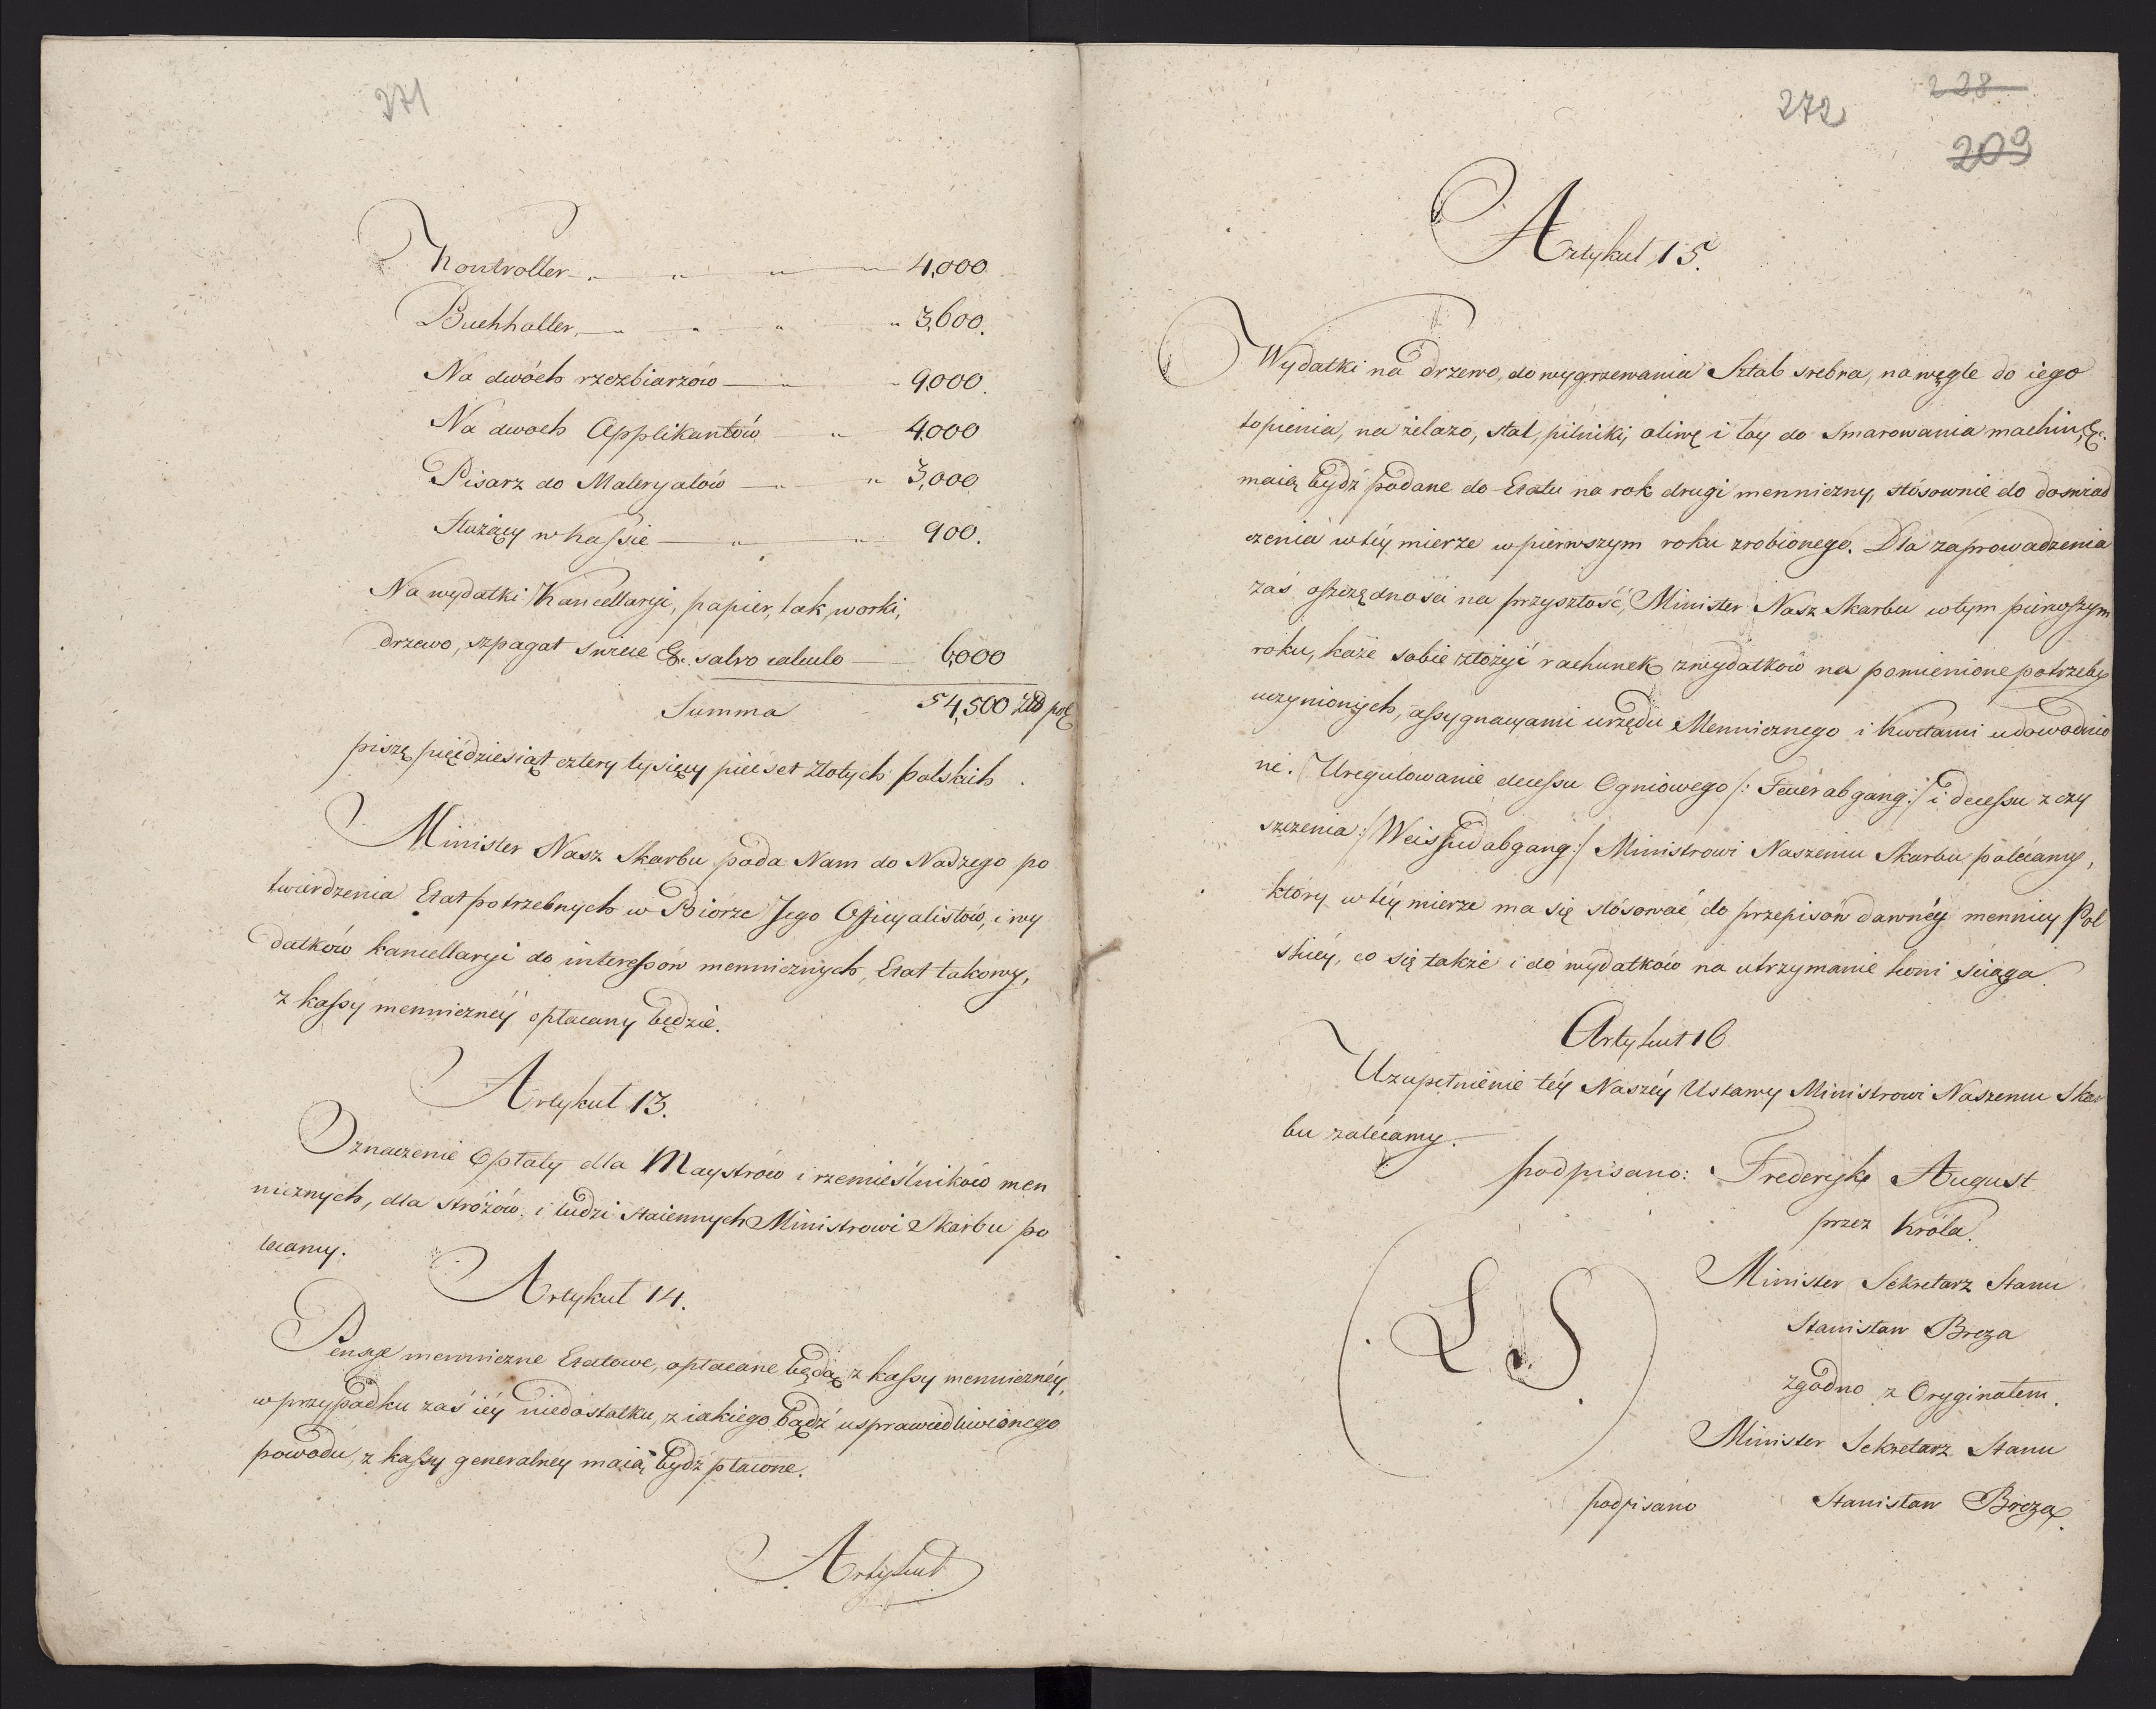 271
Kontroller 4,000
Buchhalter 3,600.
Na dwóch rzezbiarzów 9,000.
Na dwoch Applikantów 4,000
Pisarz do Materyałów 3,000
Służący w kassie 900.
Na wydatki Kancellaryi, papier, lak, worki,
drzewo, szpagat swiece &c. salvo calculo 6,000
Summa 54,500 Złł pol
piszę pięćdziesiąt cztery tysięcy pięćset Złotych polskich.
Minister Nasz Skarbu poda Nam do Naszego po
twierdzenia Etat potrzebnych w Biórze Jego Officyalistów, i wy
datków kancellaryi do interessów mennicznych, Etat takowy,
z kassy menniczнéy opłacany będzie.
Artykuł 13.
Oznaczenie Opłaty dla Maystrów i rzemieślników men
nicznych, dla stróżów i ludzi staiennych Ministrowi Skarbu po
lecamy.
Artykuł 14.
Pensye menniczne Etatowe, opłacane będą z kassy mennicznéy,
w przypadku zaś iéy niedostatku, z iakiego bądź usprawiedliwionego
powodu, z kassy generalnéy maią bydź płacone.
Artykuł
272
238
209
Artykuł 15.
Wydatki na drzewo, do wygrzewania Sztab srebra, na węgle do iego
topienia, na żelazo, stal, pilniki, oliwę i łoy do smarowania machin, &c.
maią bydź podane do Etatu na rok drugi menniczny, stósownie do doswiad
czenia w téy mierze w pierwszym roku zrobionego. Dla zaprowadzenia
zaś oszczędności na przyszłość, Minister Nasz Skarbu w tym pierwszym
roku, każe sobie złożyć rachunek z wydatków na pomienione potrzeby
uczynionych, assygnacyami urzędu Mennicznego i kwitami udowodnio
ne. Uregulowanie decessu Ogniowego /: Feuerabgang :/ i decessu z czy
szczenia /: Weissudabgang :/ Ministrowi Naszemu Skarbu polécamy,
który w téy mierze ma się stósować do przepisów dawnéy mennicy Pol
skiéy, co się także i do wydatków na utrzymanie koni ściąga.
Artykuł 16
Uzupełnienie téy Naszéy Ustawy Ministrowi Naszemu Skar
bu zalécamy.
podpisano: Frederyk August
przez Króla.
Minister Sekretarz Stanu
Stanisław Breza
L. S.
zgodno z Oryginałem.
Minister Sekretarz Stanu
podpisano Stanisław Breza.